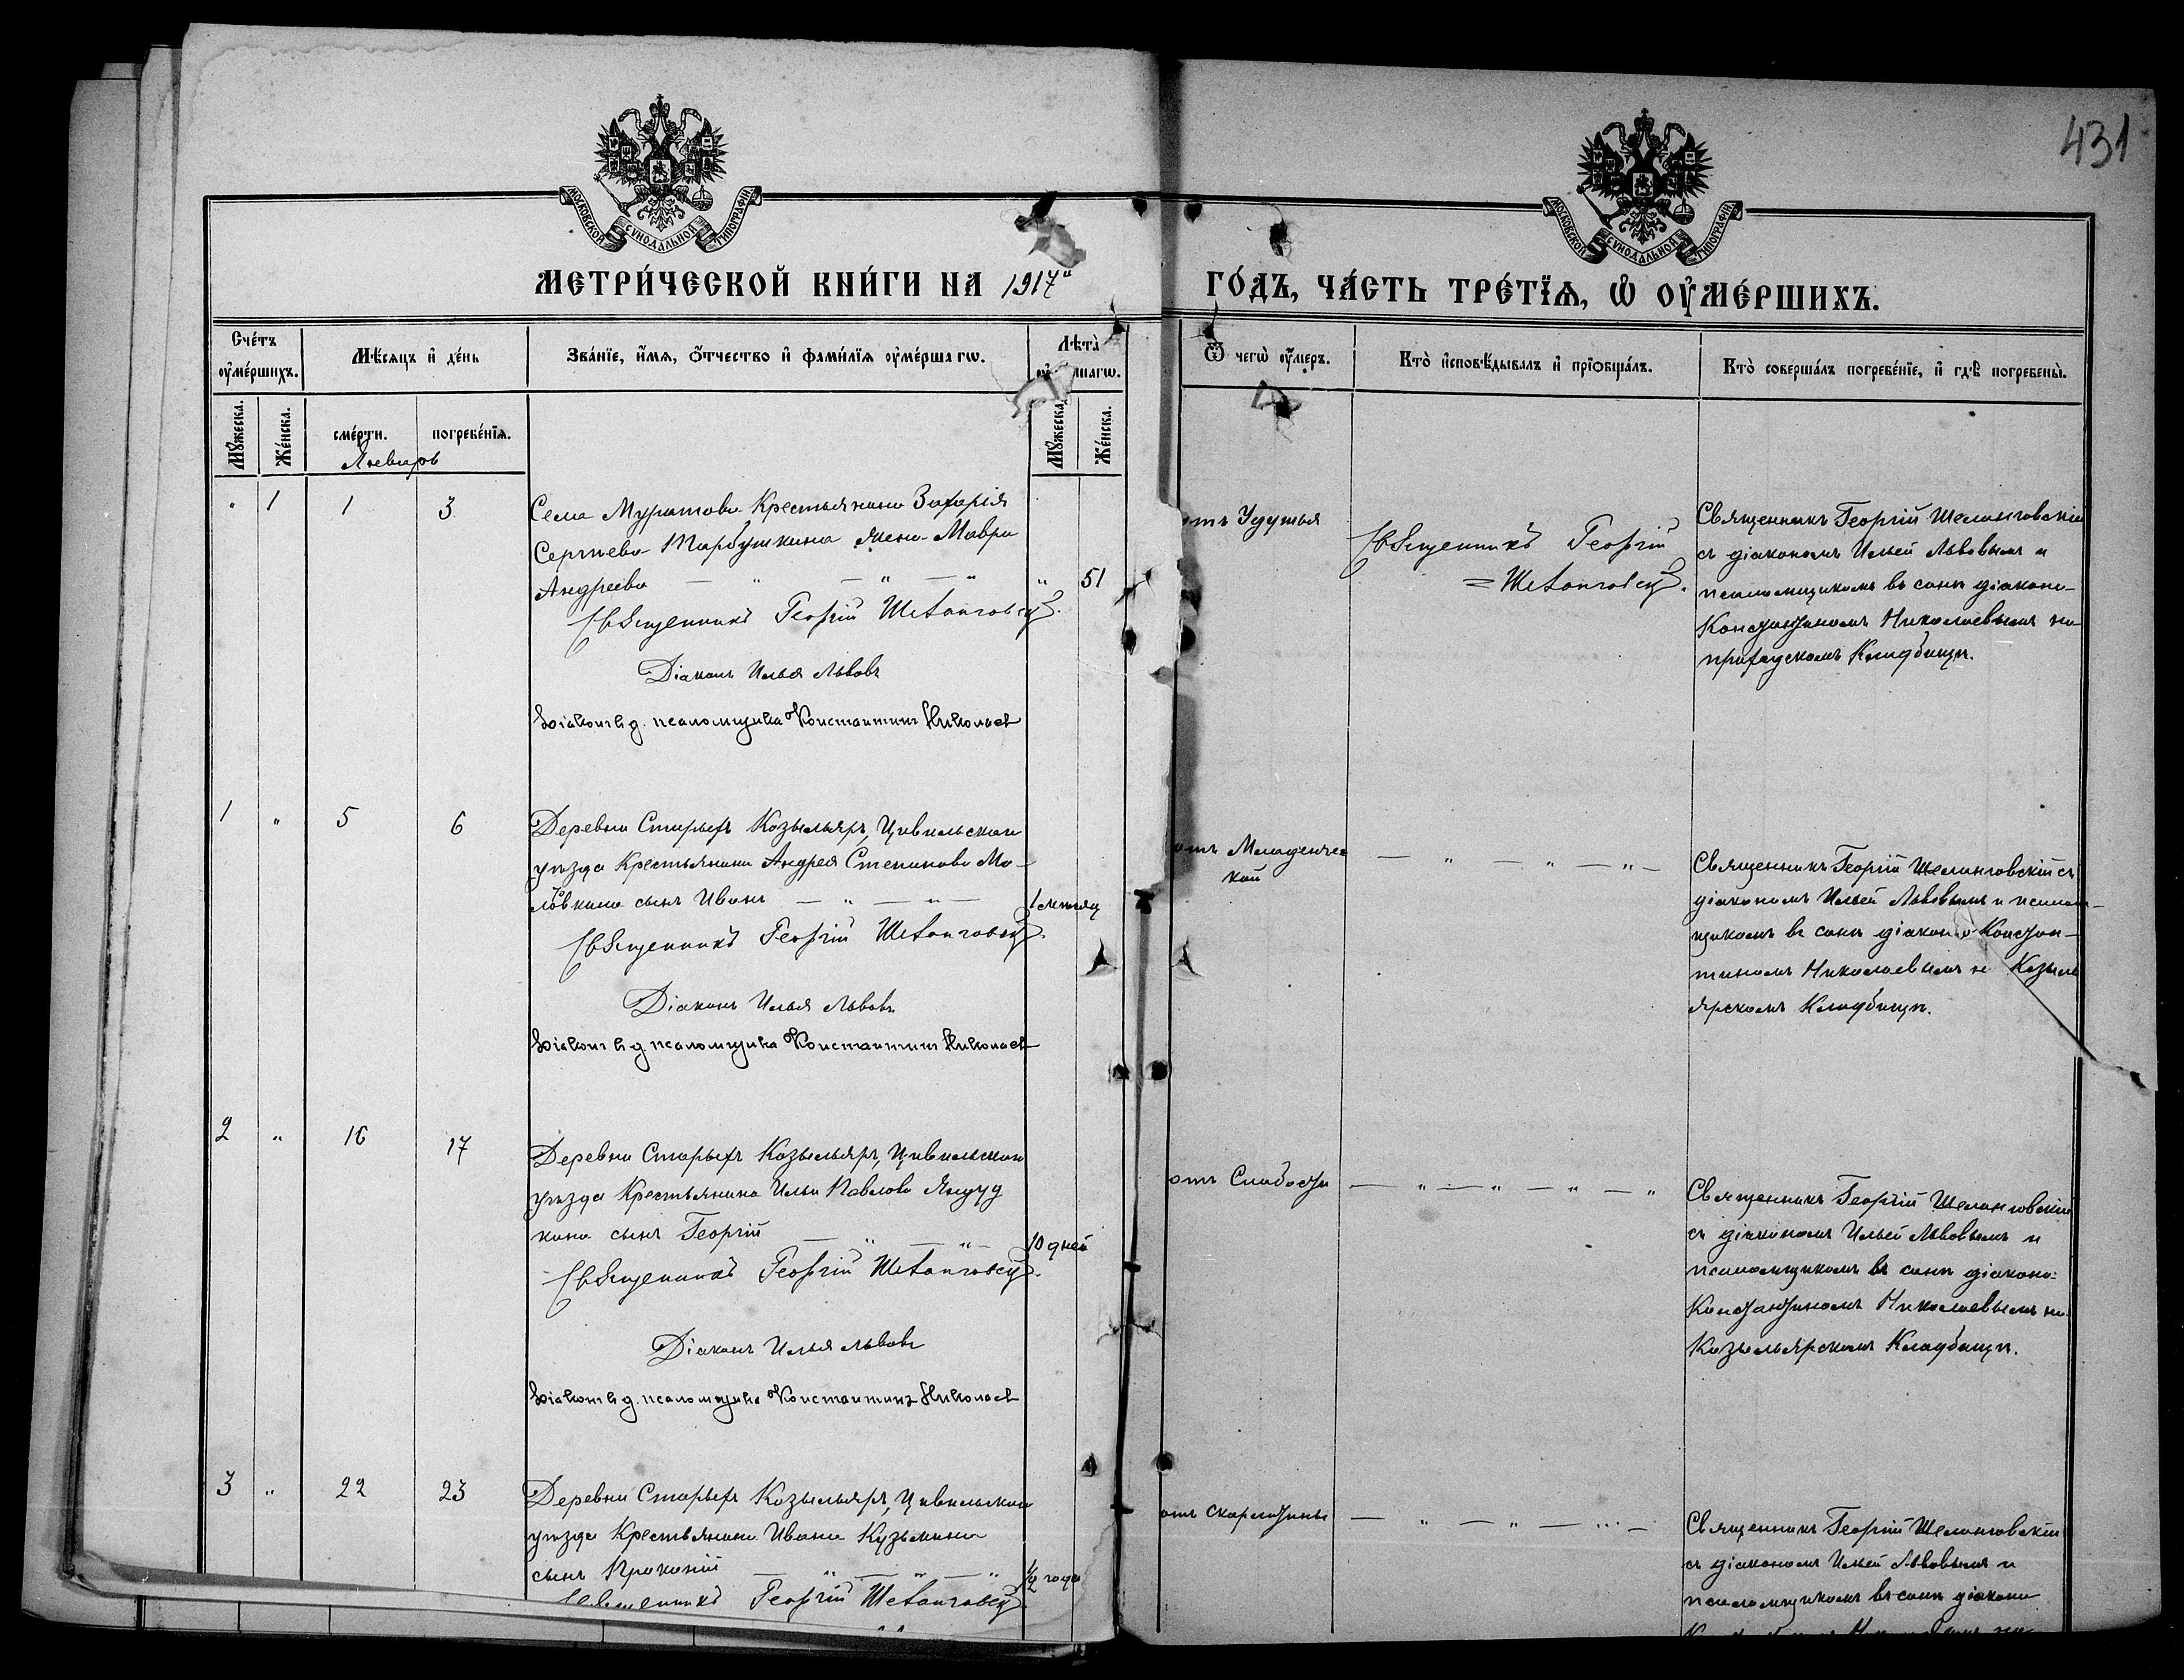 431
МОСКОВСКОЙ СѴНОДАЛЬНОЙ ТИПОГРАФІИ
МОСКОВСКОЙ СѴНОДАЛЬНОЙ ТИПОГРАФІИ
МЕТРИ́ЧЕСКОЙ КНИ́ГИ НА 1917й ГО́ДЪ, ЧА́СТЬ ТРЕ́ТЇѦ, Ѡ ОУМЕ́РШИХЪ.
Сче́тъ оуме́ршихъ.
Мѣ́сяцъ и де́нь
Зва́нїе, и́мя, о́тчество и фами́лїя оуме́ршагѡ.
Лѣта̀
Ѿ чегѡ̀ оу́меръ.
Кто̀ исповѣ́дывалъ и прїобща́лъ.
Кто̀ соверша́лъ погребе́нїе, и гдѣ̀ погребены̀.
Мꙋ́жеска.
Же́нска.
сме́рти.
погребе́нїя.
Мꙋ́жеска.
Же́нска.
Январь
" 1 1 3
Села Муратова Крестьянина Захарія
Сергѣева Тарбушкина жена Мавра
Андреева — " — " — " " 51
Священникъ Георгій Шелонговскій.
Діаконъ Илья Львовъ
Діаконъ н д. псаломщика Константинъ Николаев
отъ Удушья
Священникъ Георгій
= Шелонговскій.
Священникъ Георгій Шелонговскій
съ діакономъ Ильей Львовымъ и
псаломщикомъ въ санѣ діакона-
Константиномъ Николаевымъ на
приходскомъ Кладбищѣ.
1 " 5 6
Деревни Старыхъ Козыльяръ, Цивильскаго
уѣзда Крестьянина Андрея Степанова Мо-
ловкина сынъ Иванъ — " — " — 1 мѣсяц
Священникъ Георгій Шелонговскій.
Діаконъ Илья Львовъ
Діаконъ н д. псаломщика Константинъ Николаев
отъ Младенчес
кой
— " — " — " —
Священникъ Георгій Шелонговскій съ
діакономъ Ильей Львовымъ и псалом-
щикомъ въ санѣ діакона Констан-
тиномъ Николаевымъ на Козыль
ярскомъ Кладбищѣ.
2 " 16 17
Деревни Старыхъ Козыльяръ, Цивильскаго
уѣзда Крестьянина Ильи Павлова
кина сынъ Георгій — " — " — 10 дней
Священникъ Георгій Шелонговскій.
Діаконъ Илья Львовъ
Діаконъ н д. псаломщика Константинъ Николаев
отъ Слабости — " — " — " — "
Священникъ Георгій Шелонговскій
съ діакономъ Ильей Львовымъ и
псаломщикомъ въ санѣ діакона-
Константиномъ Николаевымъ на
Козыльярскомъ Кладбищѣ.
3 " 22 23
Деревни Старыхъ Козыльяръ, Цивильскаго
уѣзда Крестьянина Ивана Кузьмина
сынъ Прокопій — " — " — " 1/2 года
Священникъ Георгій Шелонговскій
отъ Скарлатины — " — " — " —
Священникъ Георгій Шелонговскій
съ діакономъ Ильей Львовымъ и
псаломщикомъ въ санѣ діакона